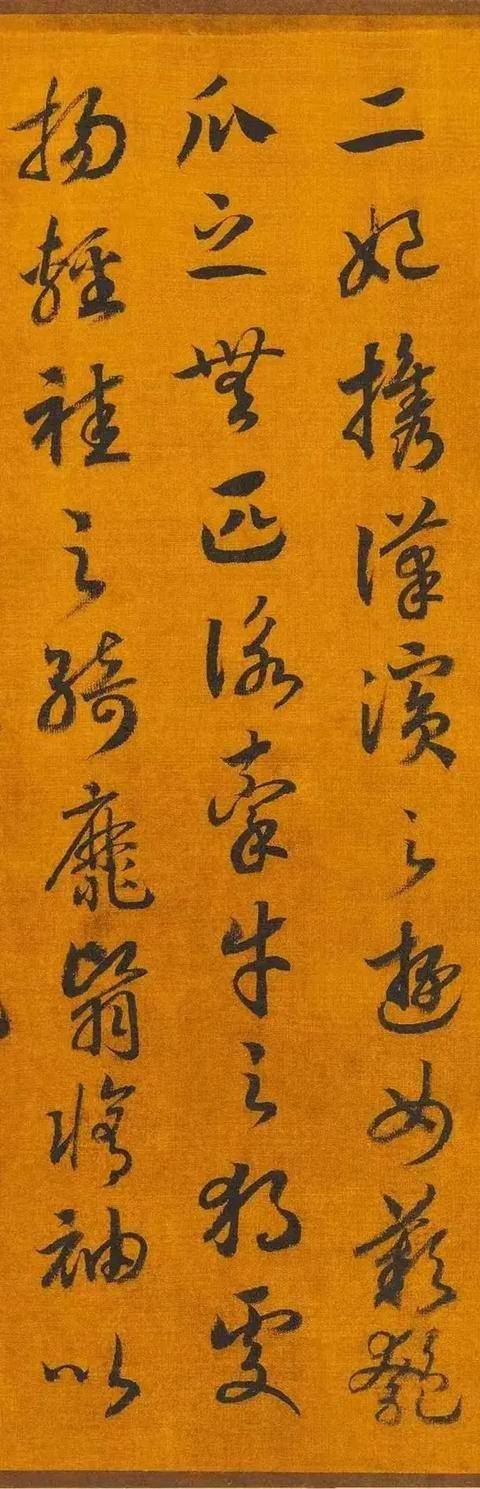 二妃携漢濱之遊女歎匏
瓜之無匹詠牽牛之獨處
揚輕袿之綺靡翳脩袖以